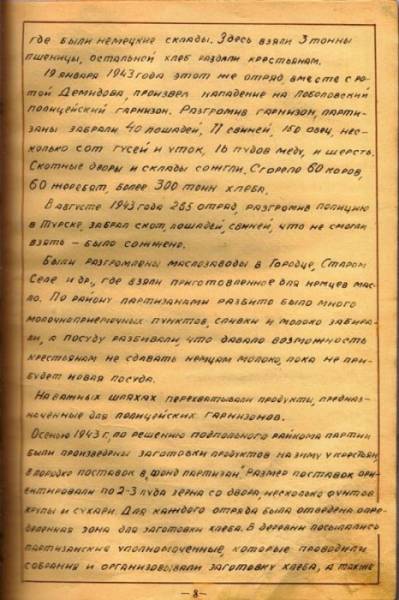 где были немецкие склады. Здесь взяли 3 тонны
пшеницы, остальной хлеб раздали крестьянам.
19 января 1943 года этот же отряд, вместе с ро-
той Демидова, произвел нападение на Лоboловский
полицейский гарнизон. Разгромив гарнизон, парти-
заны забрали 40 лошадей, 11 свиней, 150 овец, нес-
колько сот гусей и уток, 16 пудов меду, и шерсть.
Скотные дворы и склады сожгли. Сгорело 60 коров,
60 жеребят, более 300 тонн хлеба.
В августе 1943 года 265 отряд, разгромив полицию
в Турске, забрал скот, лошадей, свиней, что не смогли
взять – было сожжено.
Были разгромлены маслозаводы в Городце, Старом
Селе и др., где взяли приготовленное для немцев мас-
ло. По району партизанами разбито было много
молочноприемочных пунктов, сливки и молоко забира-
ли, а посуду разбивали, что давало возможность
крестьянам не сдавать немцам молоко, пока не при-
будет новая посуда.
На важных шляхах перехватывали продукты, предназ-
наченные для полицейских гарнизонов.
Осенью 1943 г., по решению подпольного райкома партии
были произведены заготовки продуктов на зиму у крестьян,
в порядке поставок в „фонд партизан". Размер поставок ори-
ентировали по 2-3 пуда зерна со двора, несколько фунтов
крупы и сухари. Для каждого отряда была отведена опре-
деленная зона для заготовки хлеба. В деревни посылались
партизанские уполномоченные, которые проводили
собрания и организовывали заготовку хлеба, а также
– 8 –